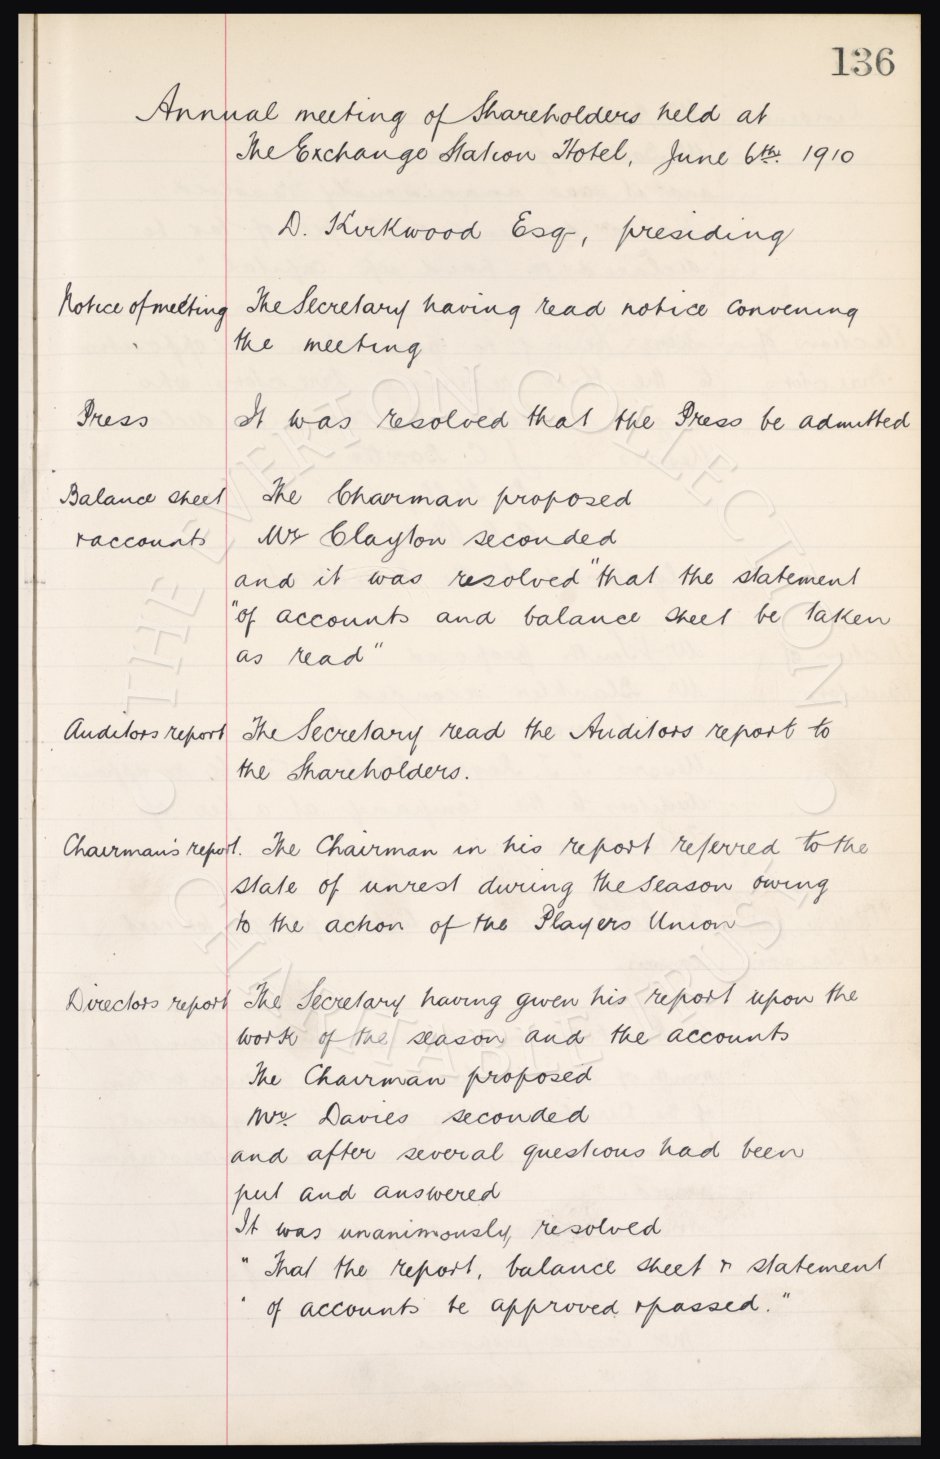 136
Annual meeting of Shareholders held at
The Exchange Station Hotel, June 6th. 1910
D. Kirkwood Esq, presiding
Notice of meeting The Secretary having read notice convening
the meeting
Press It was resolved that the Press be admitted
Balance sheet The Chairman proposed
& accounts Mr Clayton seconded
and it was resolved "that the statement
"of accounts and balance sheet be taken
as read"
Auditors report The Secretary read the Auditors report to
the Shareholders.
Chairman's report. The Chairman in his report referred to the
state of unrest during the season owing
to the action of the Players Union
Directors report The Secretary having given his report upon the
work of the season and the accounts
The Chairman proposed
Mr. Davies seconded
and after several questions had been
put and answered
It was unanimously resolved
" That the report, balance sheet & statement
' of accounts be approved & passed."
THE EVERTON COLLECTION
CHARITABLE TRUST